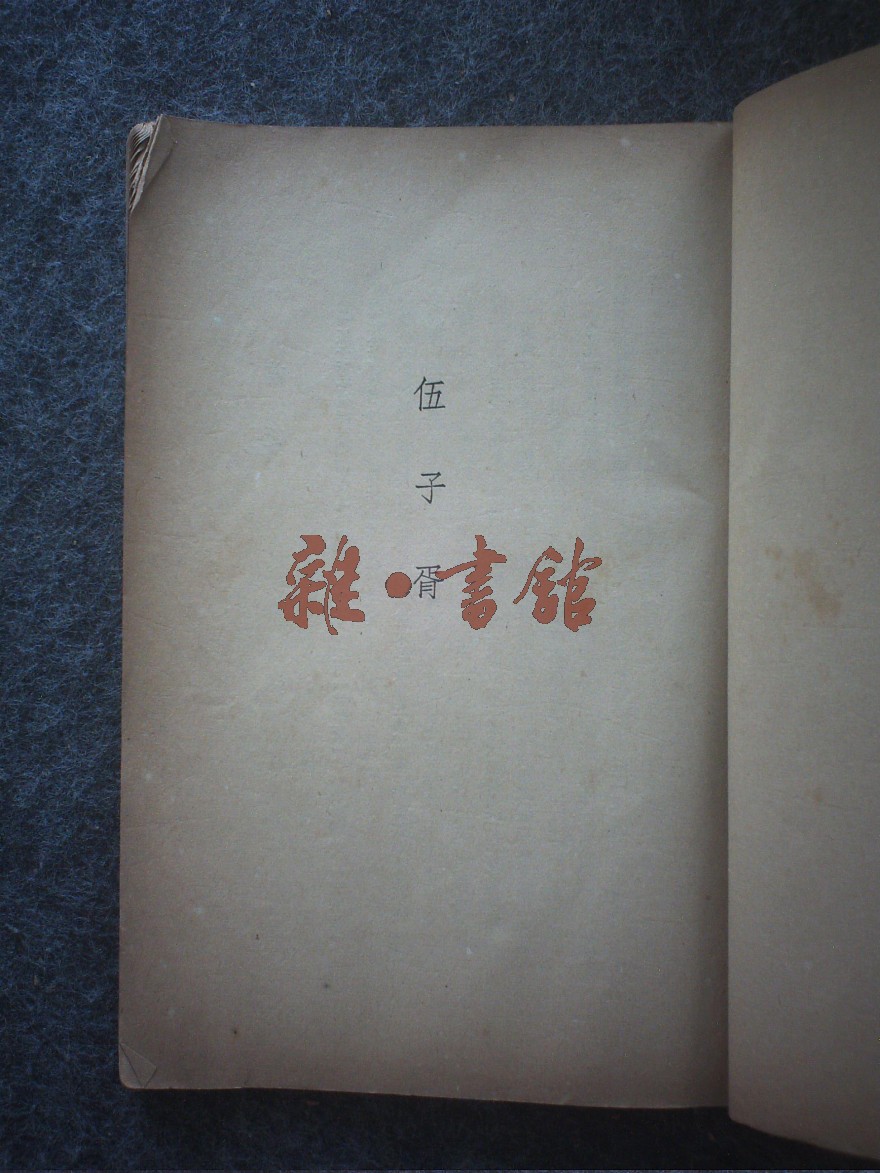 伍子胥
雜·書館